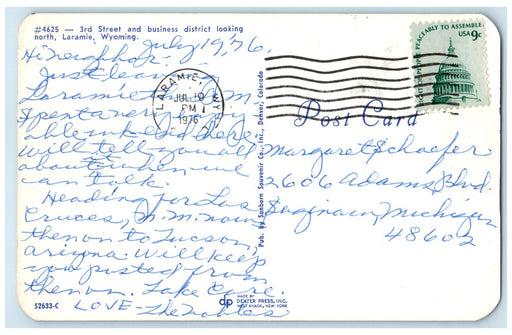 #4625 — 3rd Street and business district looking
north, Laramie, Wyoming.
July 19, 76.
Hi Neighbor:
Just leaving
Laramie
Spent a very enjoy-
able week end here.
will tell you all
about it when we
can talk.
Heading for Las
Cruces, N.M. now
then on to Tucson,
Arizona. Will keep
you posted from
then on. Take Care.
LOVE - The Nobles
52633-C
LARAMIE, WY
JUL 19
PM
1976
Pub. by Sanborn Souvenir Co., Inc., Denver, Colorado
PEACEABLY TO ASSEMBLE
USA 9c
Post Card
Margaret Schaefer
2606 Adams Blvd.
Saginaw, Michigan
48602
dp
MADE BY
DEXTER PRESS, INC.
WEST NYACK, NEW YORK